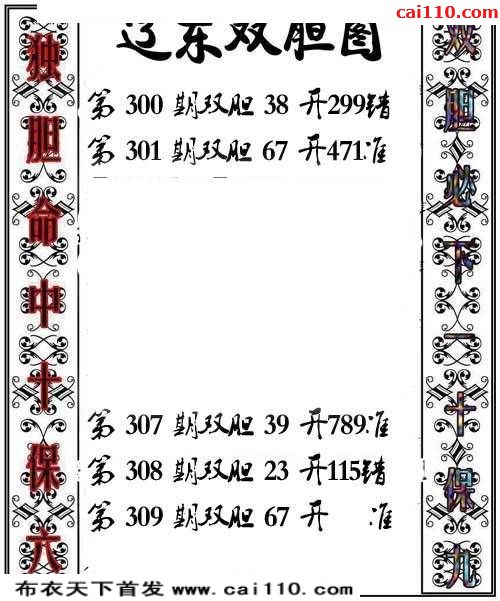 cai110.com
辽东双胆图
第 300 期双胆 38 开299错
第 301 期双胆 67 开471准
第 307 期双胆 39 开789准
第 308 期双胆 23 开115错
第 309 期双胆 67 开 准
独胆命中十保六
双胆必下一十保九
布衣天下首发 www.cai110.com